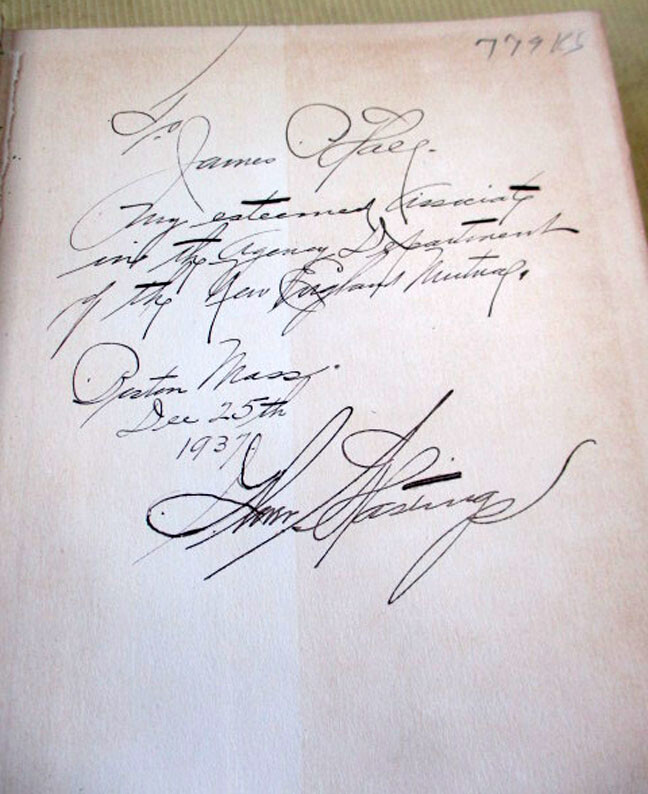 779 KS
To
James P. Hall.
My esteemed Associate
in the Agency Department
of the New England Mutual.
Boston Mass.
Dec 25th
1937
Hastings